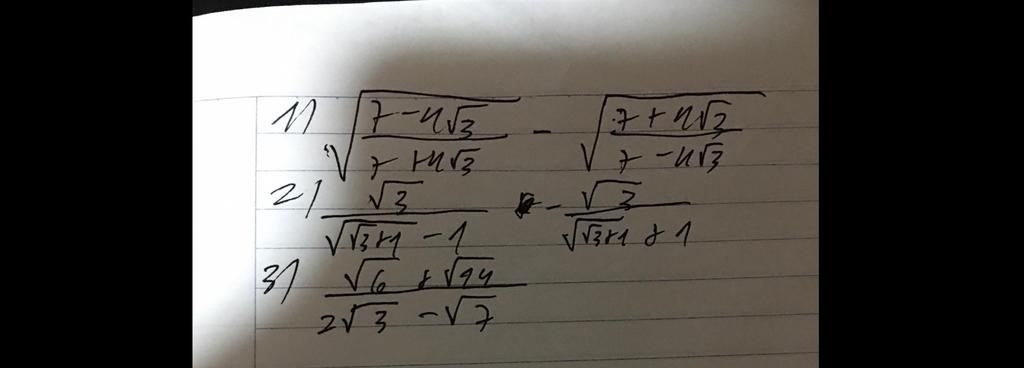 1) √((7 - 4√3)/(7 + 4√3)) - √((7 + 4√3)/(7 - 4√3))
2) √3/(√(√3+1) - 1) - √3/(√(√3+1) + 1)
3) (√6 + √14)/(2√3 - √7)